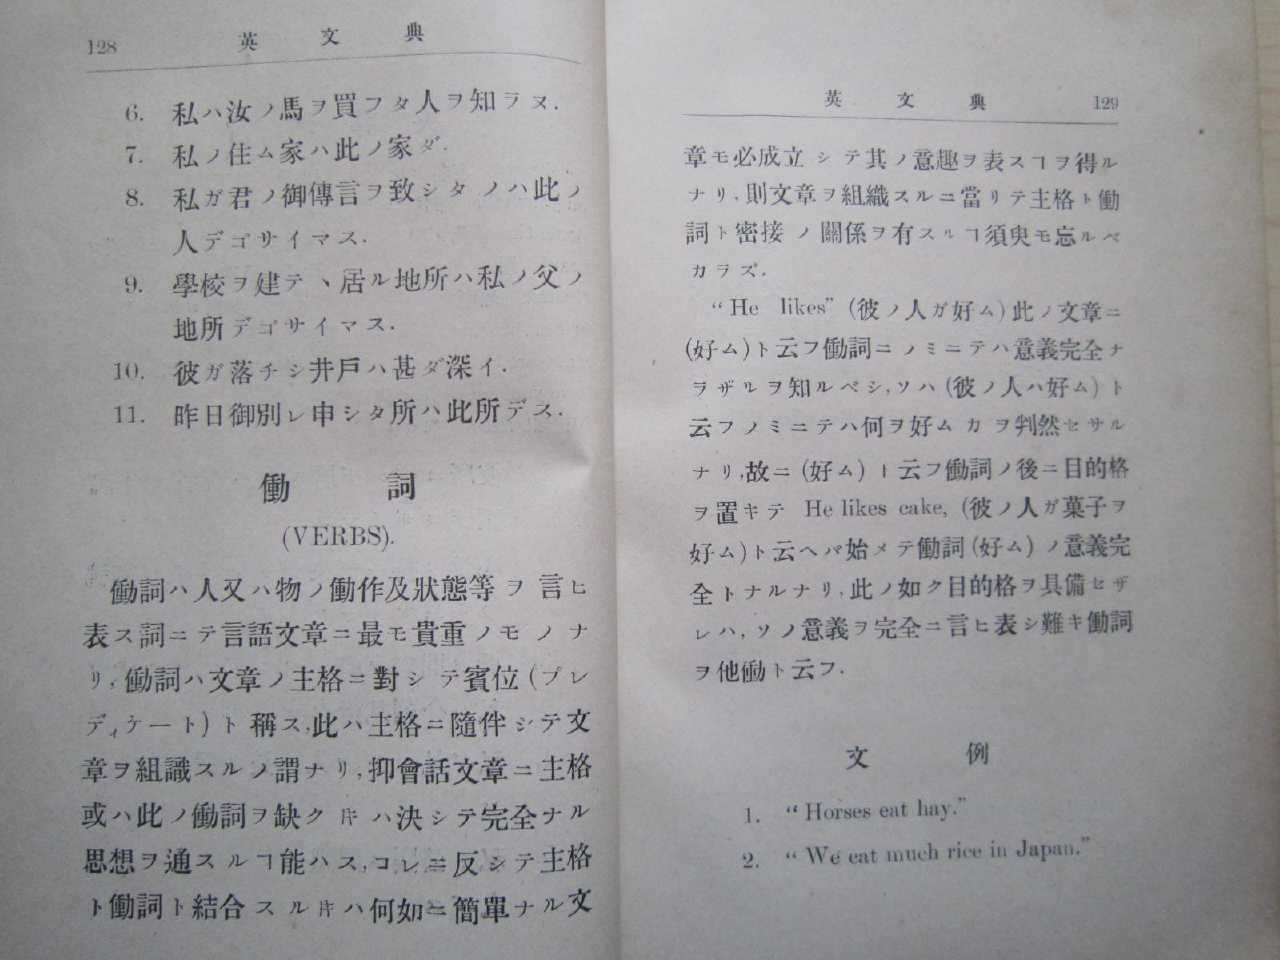 128 英文典
6. 私ハ汝ノ馬ヲ買フタ人ヲ知ラヌ.
7. 私ノ住ム家ハ此ノ家ダ.
8. 私ガ君ノ御傳言ヲ致シタノハ此ノ
人デゴサイマス.
9. 學校ヲ建テヽ居ル地所ハ私ノ父ノ
地所デゴサイマス.
10. 彼ガ落チシ井戸ハ甚ダ深イ.
11. 昨日御別レ申シタ所ハ此所デス.
働詞
(VERBS).
働詞ハ人又ハ物ノ働作及狀態等ヲ言ヒ
表ス詞ニテ言語文章ニ最モ貴重ノモノナ
リ,働詞ハ文章ノ主格ニ對シテ賓位(プレ
ディケート)ト稱ス,此ハ主格ニ隨伴シテ文
章ヲ組識スルノ謂ナリ,抑會話文章ニ主格
或ハ此ノ働詞ヲ缺ク𪜈ハ決シテ完全ナル
思想ヲ通スルヿ能ハス,コレニ反シテ主格
ト働詞ト結合スル𪜈ハ何如ニ簡單ナル文
英文典 129
章モ必成立シテ其ノ意趣ヲ表スヿヲ得ル
ナリ,則文章ヲ組織スルニ當リテ主格ト働
詞ト密接ノ關係ヲ有スルヿ須臾モ忘ルベ
カラズ.
“He likes” (彼ノ人ガ好ム)此ノ文章ニ
(好ム)ト云フ働詞ニノミニテハ意義完全ナ
ヲザルヲ知ルベシ,ソハ(彼ノ人ハ好ム)ト
云フノミニテハ何ヲ好ムカヲ判然セサル
ナリ,故ニ(好ム)ト云フ働詞ノ後ニ目的格
ヲ置キテ He likes cake, (彼ノ人ガ菓子ヲ
好ム)ト云ヘバ始メテ働詞(好ム)ノ意義完
全トナルナリ,此ノ如ク目的格ヲ具備セザ
レハ,ソノ意義ヲ完全ニ言ヒ表シ難キ働詞
ヲ他働ト云フ.
文例
1. “Horses eat hay.”
2. “We eat much rice in Japan.”